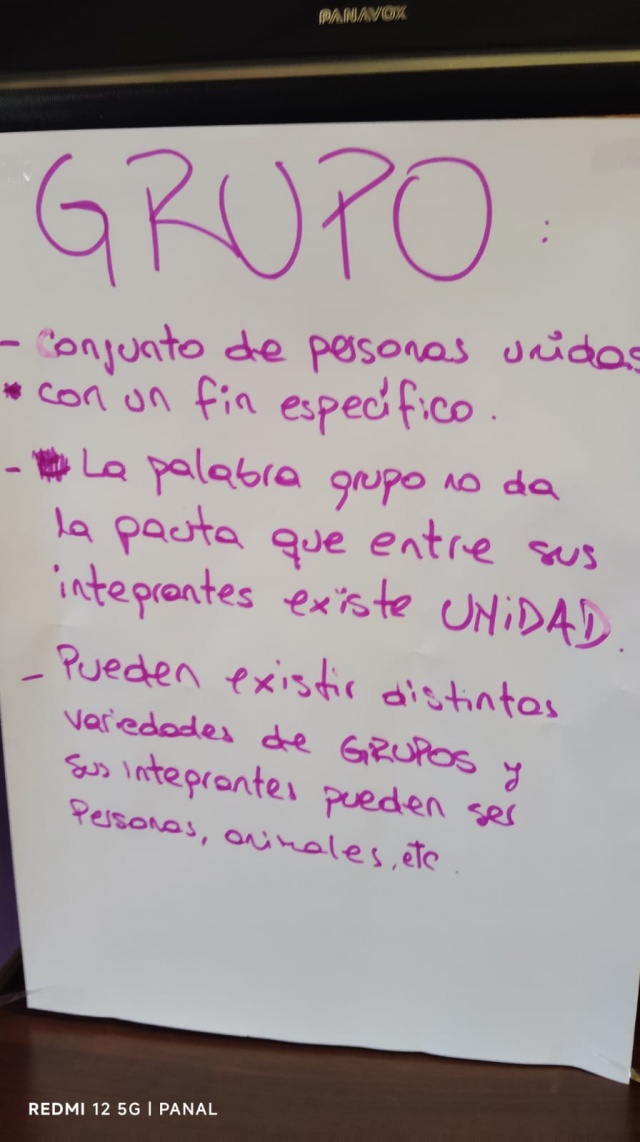 PANAVOX
GRUPO :
- Conjunto de personas unidas
* con un fin específico.
- La palabra grupo no da
la pauta que entre sus
integrantes existe UNiDAD.
- Pueden existir distintas
variedades de GRUPOS y
sus integrantes pueden ser
Personas, animales, etc.
REDMI 12 5G | PANAL